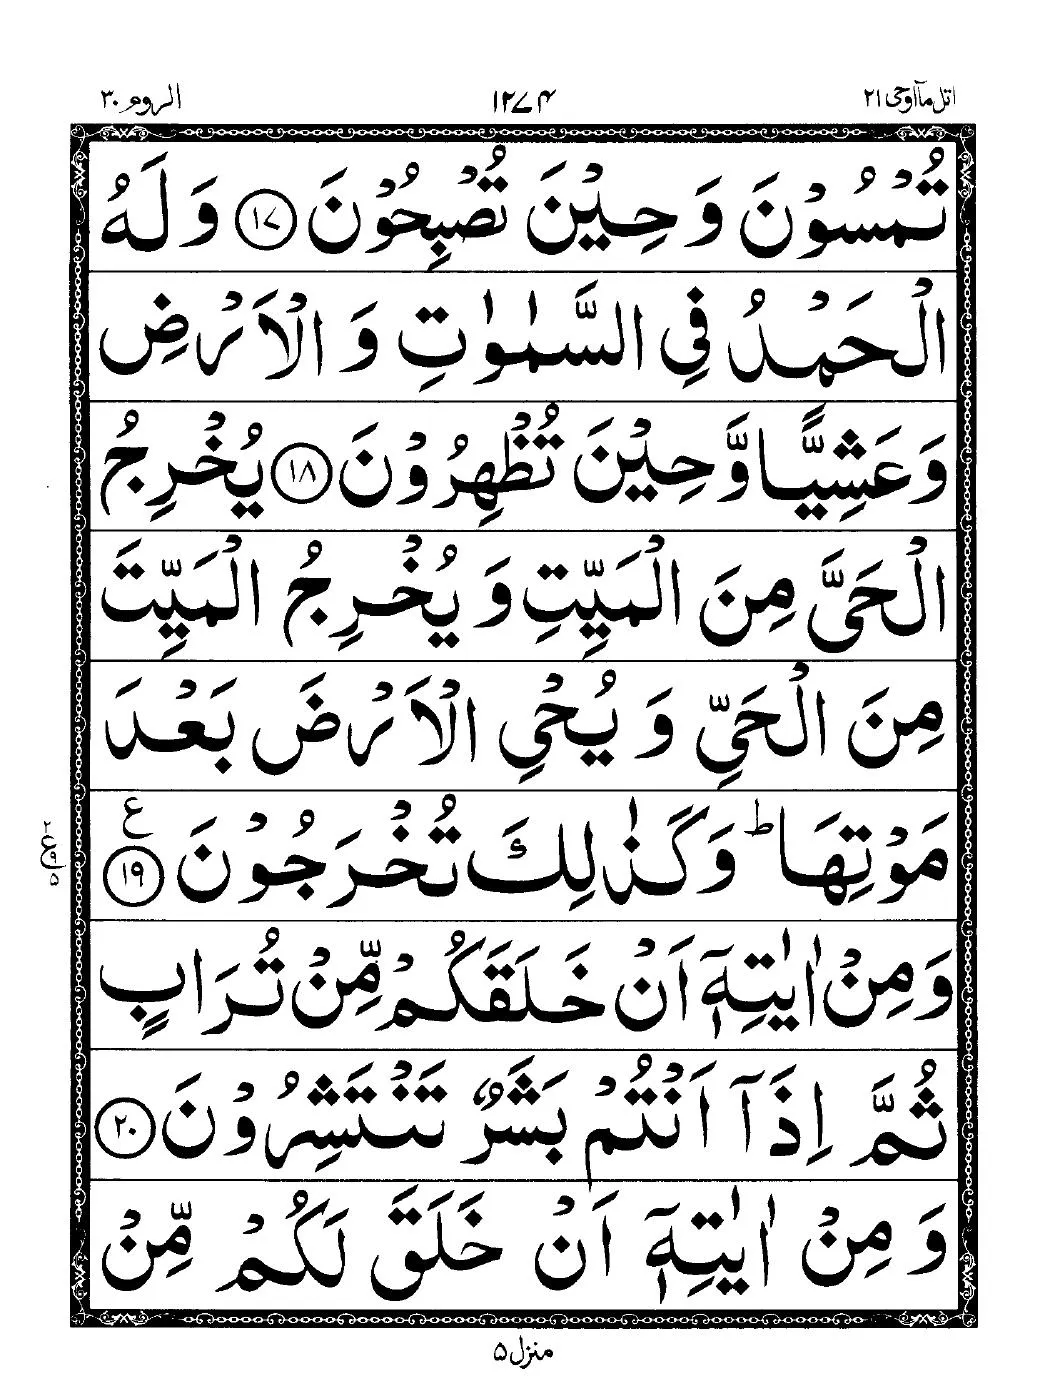 اتل مآاوحی ۲۱
۱۲۷۴
الروم ۳۰
تُمْسُوْنَ وَ حِيْنَ تُصْبِحُوْنَ ۝۱۷ وَ لَهُ
الْحَمْدُ فِي السَّمٰوٰتِ وَ الْاَرْضِ
وَ عَشِيًّا وَّ حِيْنَ تُظْهِرُوْنَ ۝۱۸ يُخْرِجُ
الْحَيَّ مِنَ الْمَيِّتِ وَ يُخْرِجُ الْمَيِّتَ
مِنَ الْحَيِّ وَ يُحْيِ الْاَرْضَ بَعْدَ
مَوْتِهَا ؕ وَ كَذٰلِكَ تُخْرَجُوْنَ ۝۱۹ ع
۲
ع ۹
۵
وَ مِنْ اٰيٰتِهٖۤ اَنْ خَلَقَكُمْ مِّنْ تُرَابٍ
ثُمَّ اِذَاۤ اَنْتُمْ بَشَرٌ تَنْتَشِرُوْنَ ۝۲۰
وَ مِنْ اٰيٰتِهٖۤ اَنْ خَلَقَ لَكُمْ مِّنْ
منزل ۵